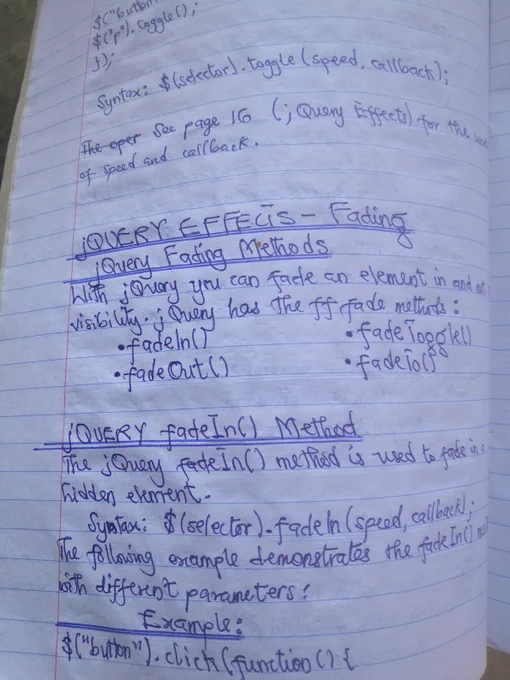 $("button
$("p").toggle();
});
Syntax: $(selector).toggle(speed, callback);
The oper See page 16 (jQuery Effects) for the
of speed and callback.
jQUERY EFFECTS - Fading
jQuery Fading Methods
With jQuery you can fade an element in and out
visibility. jQuery has the ff fade methods:
•fadeIn() •fadeToggle()
•fadeOut() •fadeTo()
jQUERY fadeIn() Method
The jQuery fadeIn() method is used to fade in a
hidden element.
Syntax: $(selector).fadeIn(speed, callback);
The following example demonstrates the fadeIn()
with different parameters:
Example:
$("button").click(function() {